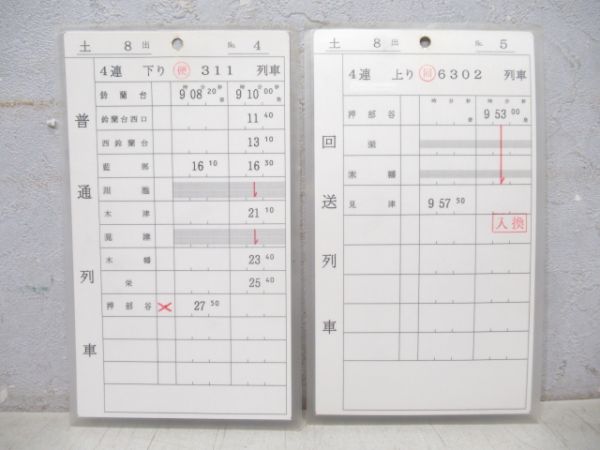 土 8 出 No. 4
4連 下り 便 311 列車
普通列車
鈴蘭台 9 08 20 9 10 00
鈴蘭台西口 11 40
西鈴蘭台 13 10
藍那 16 10 16 30
川池
木津 21 10
見津
木幡 23 40
栄 25 40
押部谷 27 50
土 8 出 No. 5
4連 上り 回 6302 列車
回送列車
押部谷 9 53 00
栄
木幡
見津 9 57 50
入換